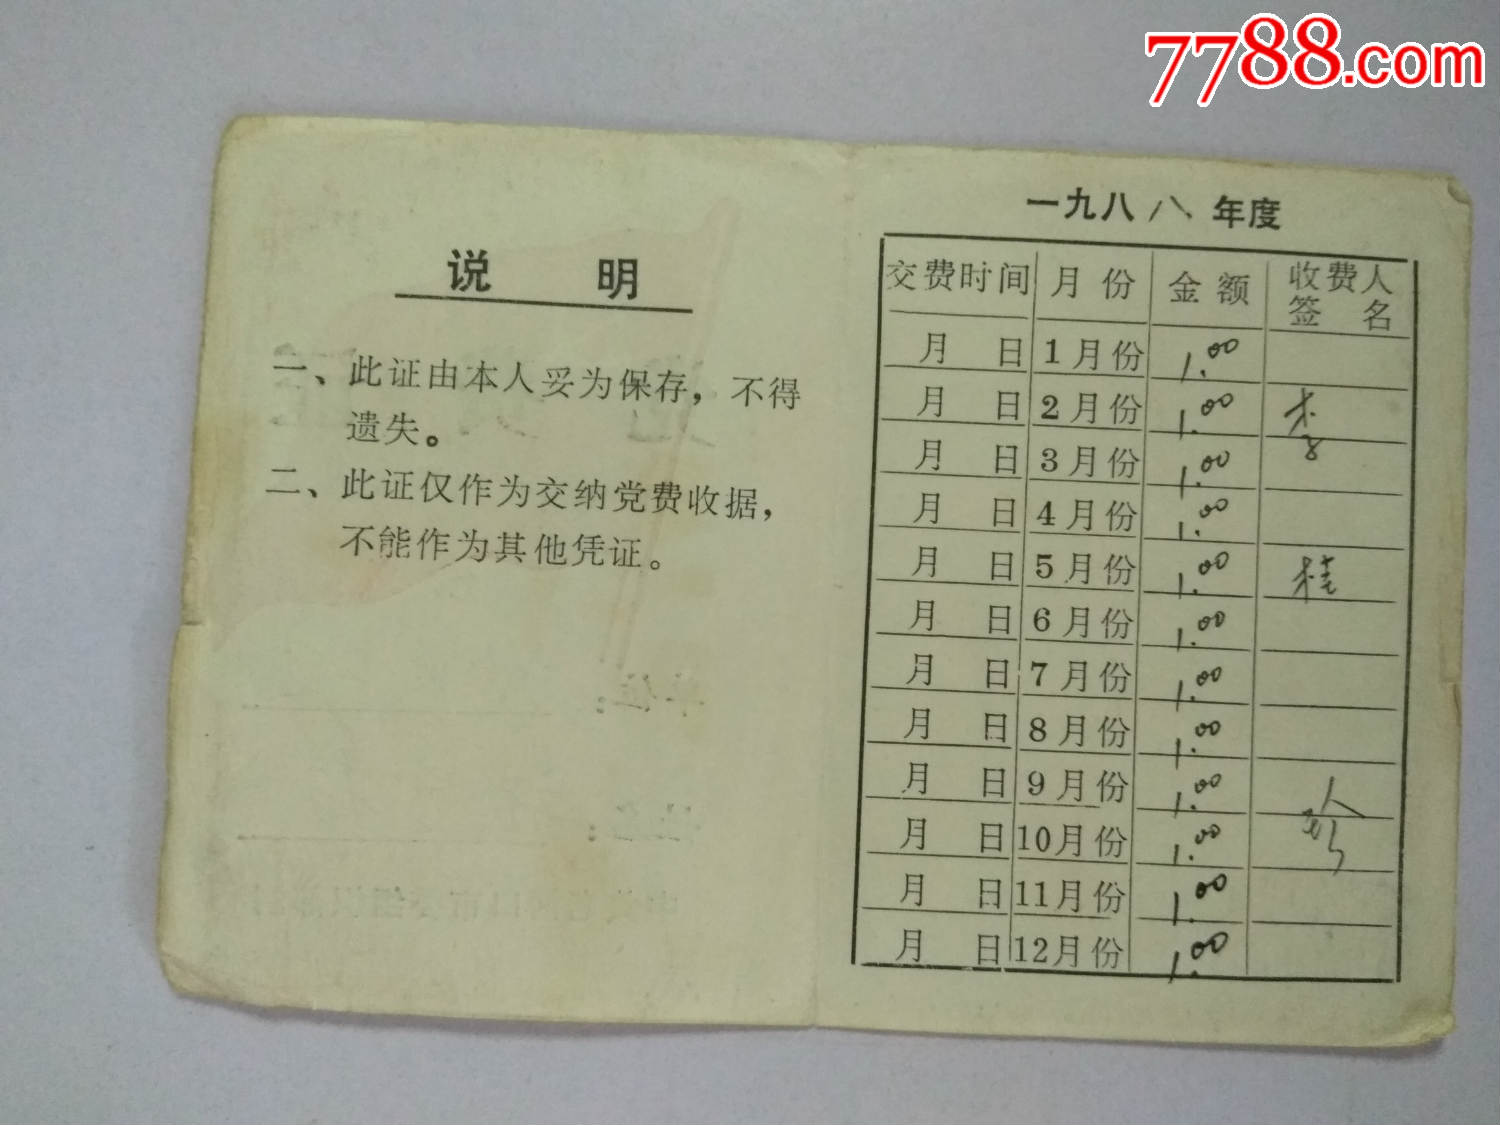 7788.com
说 明
一、此证由本人妥为保存，不得
遗失。
二、此证仅作为交纳党费收据，
不能作为其他凭证。
一九八八年度
交费时间 月份 金额 收费人
签名
月 日 1月份 1.00
月 日 2月份 1.00 李
月 日 3月份 1.00
月 日 4月份 1.00
月 日 5月份 1.00 桂
月 日 6月份 1.00
月 日 7月份 1.00
月 日 8月份 1.00
月 日 9月份 1.00
月 日 10月份 1.00
月 日 11月份 1.00
月 日 12月份 1.00